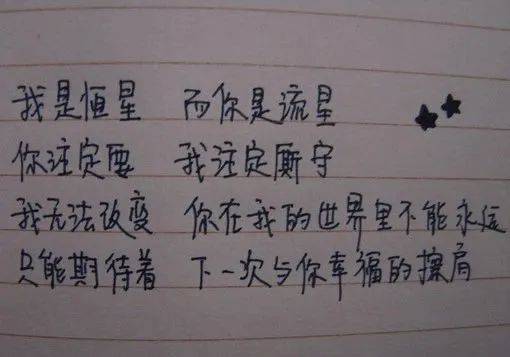 我是恒星 而你是流星
你注定要 我注定厮守
我无法改变 你在我的世界里不能永远
只能期待着 下一次与你幸福的擦肩